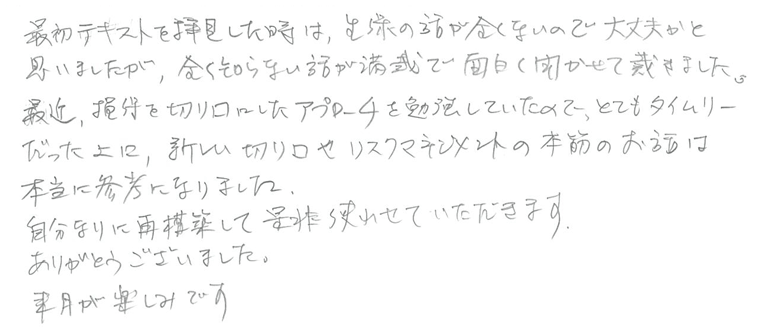 最初テキストを拝見した時は、生保の話が全くないので大丈夫かと
思いましたが、全く知らない話が満載で面白く聞かせて戴きました。
最近、損保を切り口にしたアプローチを勉強していたので、とてもタイムリー
だった上に、新しい切り口やリスクマネジメントの本筋のお話は
本当に参考になりました。
自分なりに再構築して是非使わせていただきます。
ありがとうございました。
来月が楽しみです